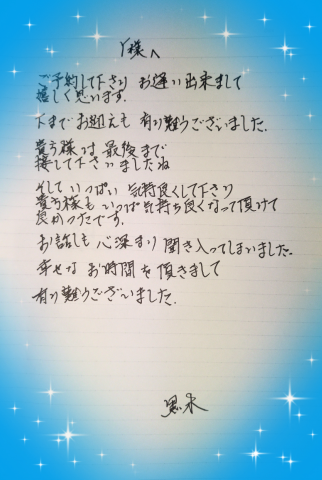 Y様へ
ご予約して下さり お逢い出来まして
嬉しく思います.
下までお迎えも 有り難うございました.
貴方様は 最後まで
接して下さいましたね
そして いっぱい 気持良くして下さり
貴方様も いっぱ気持ち良くなって頂けて
良かったです.
お話しも 心深まり 聞き入ってしまいました.
幸せな お時間を 頂きまして
有り難うございました.
黒木